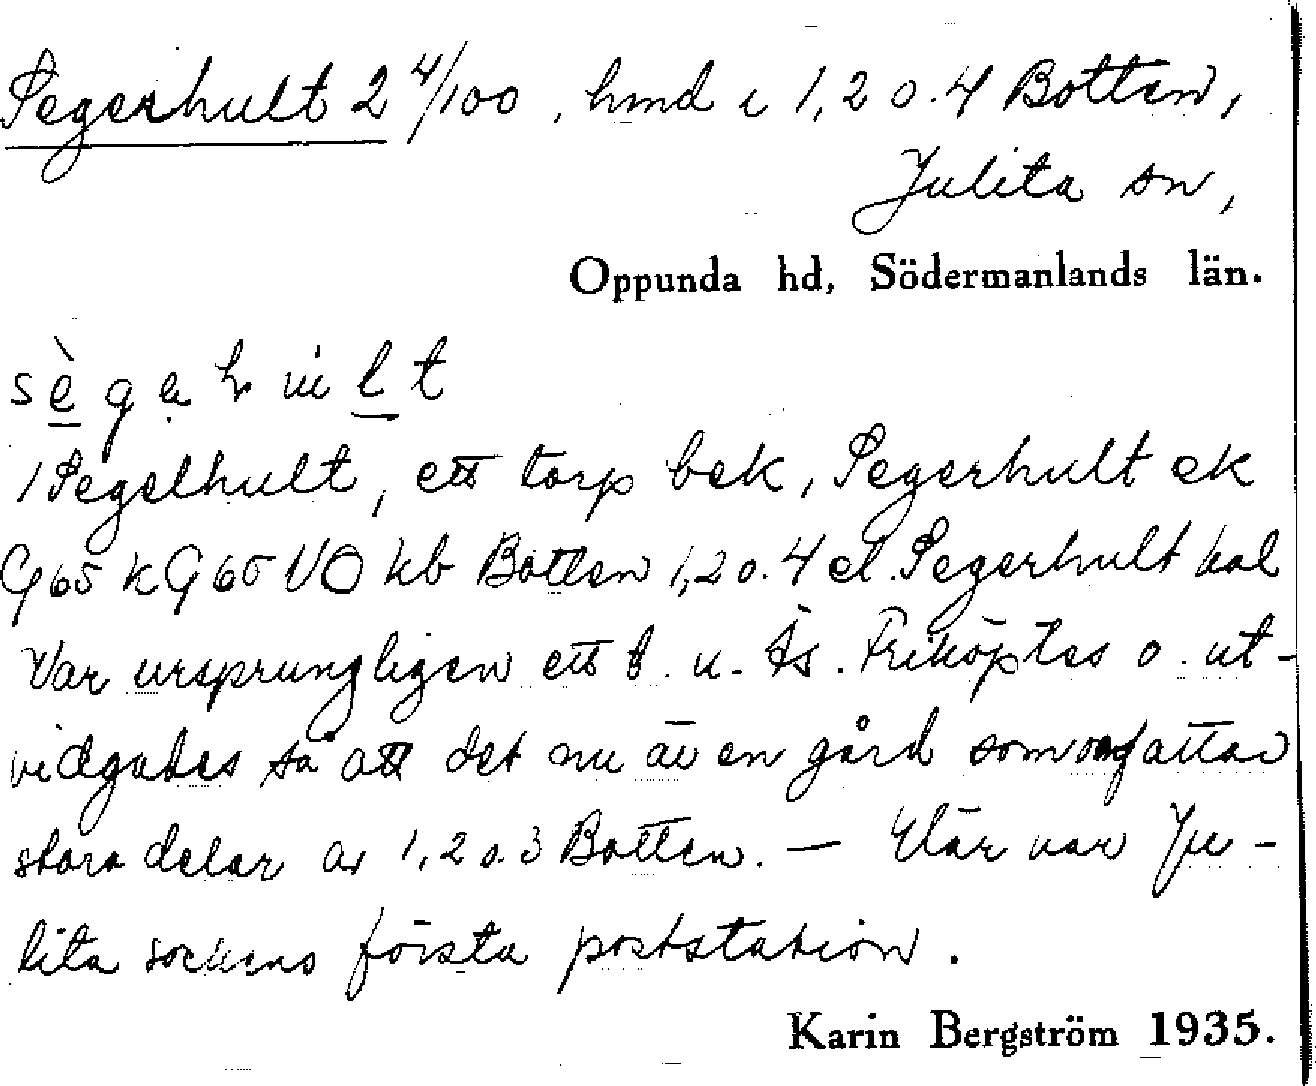 Segerhult 2 4/100, hmd i 1,2 o. 4 Botten,
Julita sn,
Oppunda hd, Södermanlands län.
sègerhult
/Segelhult, ett torp bek, Segerhult ek
G65 kG65 kb Botten 1,2 o. 4 el. Segerhult kal
Var ursprungligen ett t. u. Ås. Friköptes o. ut-
vidgades så att det nu är en gård som omfattar
stora delar av 1,2 o. 3 Botten. — Här var Ju-
lita sockens första poststation.
Karin Bergström 1935.